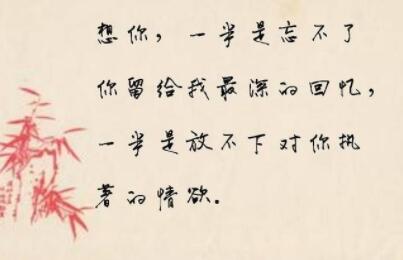 想你，一半是忘不了
你留给我最深的回忆，
一半是放不下对你执
著的情欲。